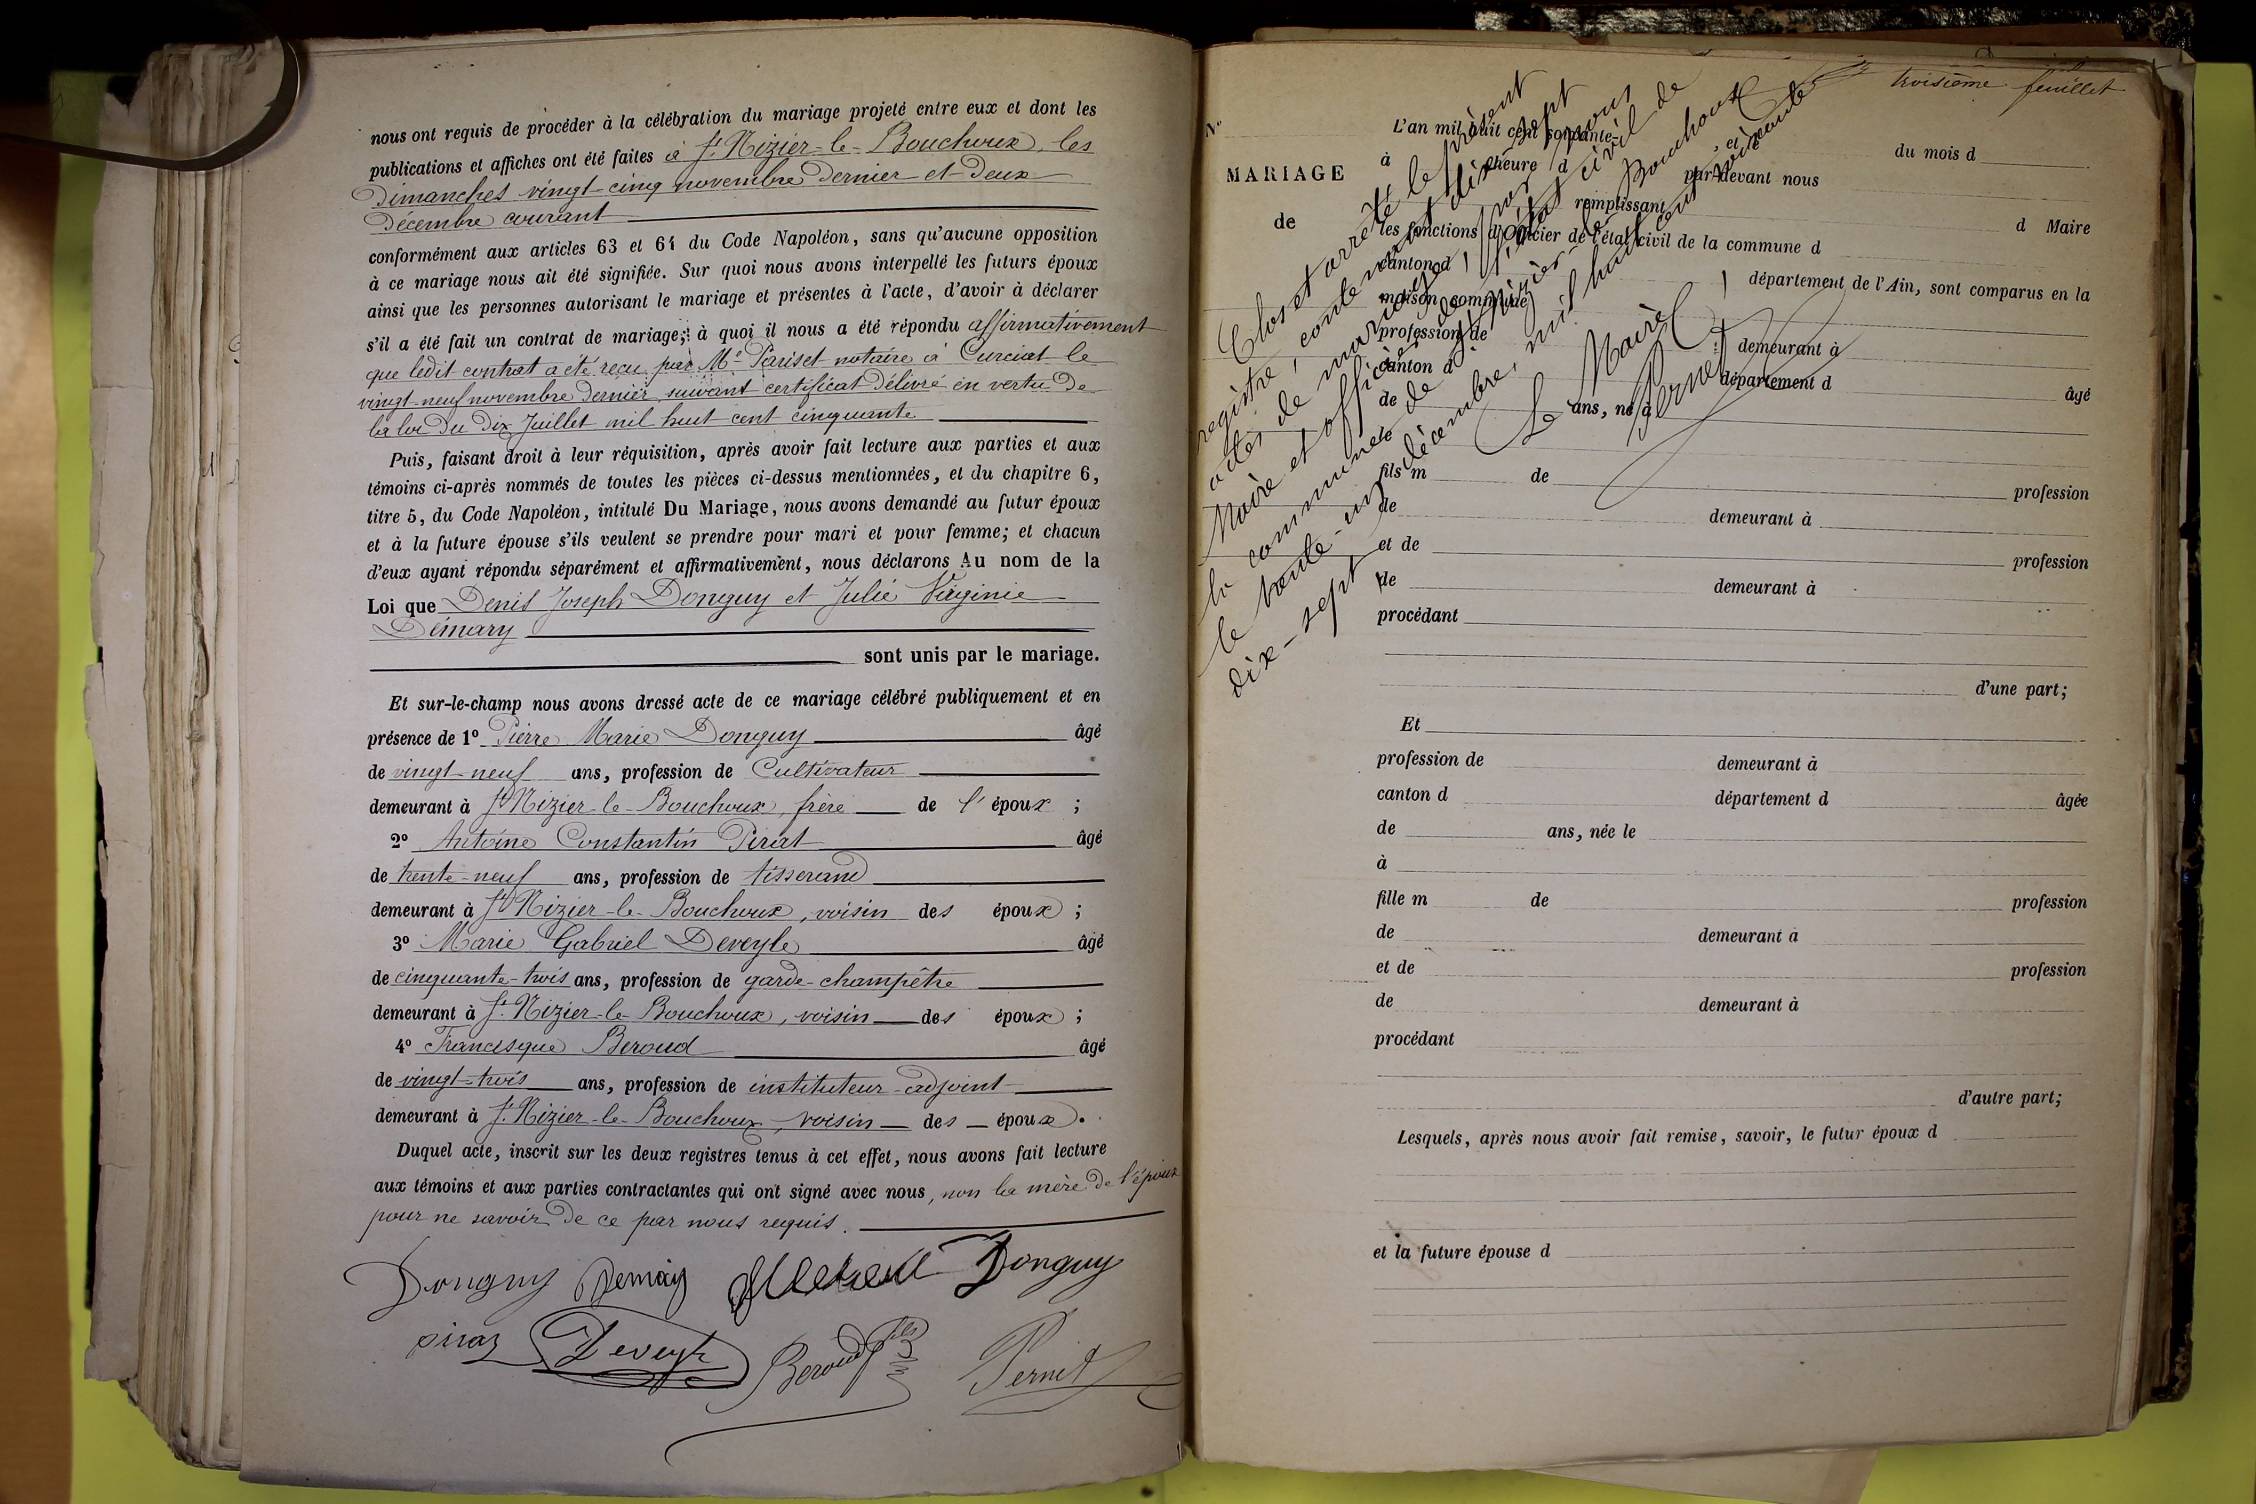 nous ont requis de procéder à la célébration du mariage projeté entre eux et dont les
publications et affiches ont été faites à St Nizier-le-Bouchoux, les
Dimanches vingt-cinq novembre dernier et deux
Décembre courant
conformément aux articles 63 et 64 du Code Napoléon, sans qu'aucune opposition
à ce mariage nous ait été signifiée. Sur quoi nous avons interpellé les futurs époux
ainsi que les personnes autorisant le mariage et présentes à l'acte, d'avoir à déclarer
s'il a été fait un contrat de mariage; à quoi il nous a été répondu affirmativement
que ledit contrat a été reçu par Me Pariset notaire à Curciat le
vingt-neuf novembre dernier suivant certificat délivré en vertu de
la loi du dix Juillet mil huit cent cinquante
Puis, faisant droit à leur réquisition, après avoir fait lecture aux parties et aux
témoins ci-après nommés de toutes les pièces ci-dessus mentionnées, et du chapitre 6,
titre 5, du Code Napoléon, intitulé Du Mariage, nous avons demandé au futur époux
et à la future épouse s'ils veulent se prendre pour mari et pour femme; et chacun
d'eux ayant répondu séparément et affirmativement, nous déclarons Au nom de la
Loi que Denis Joseph Donguy et Julie Virginie
Démary
sont unis par le mariage.
Et sur-le-champ nous avons dressé acte de ce mariage célébré publiquement et en
présence de 1° Pierre Marie Donguy âgé
de vingt-neuf ans, profession de Cultivateur
demeurant à St Nizier-le-Bouchoux, frère de l'époux ;
2° Antoine Constantin Pirat âgé
de trente-neuf ans, profession de tisserand
demeurant à St Nizier-le-Bouchoux, voisin des époux ;
3° Marie Gabriel Deveyle âgé
de cinquante-trois ans, profession de garde-champêtre
demeurant à St Nizier-le-Bouchoux, voisin des époux ;
4° Francisque Beroud âgé
de vingt-trois ans, profession de instituteur-adjoint
demeurant à St Nizier-le-Bouchoux, voisin des époux.
Duquel acte, inscrit sur les deux registres tenus à cet effet, nous avons fait lecture
aux témoins et aux parties contractantes qui ont signé avec nous, non la mère de l'époux
pour ne savoir de ce par nous requis.
Donguy Demary Donguy
piraz Deveyle Beroud fils Pernet
troisième feuillet
N°
MARIAGE
de
Clos et arrêté le présent
registre, contenant dix-sept
actes de mariage, par nous
Maire et officier de l'état civil de
la commune de St Nizier-le-Bouchoux
le trente-un décembre, mil huit cent soixante
dix-sept
Le Maire,
Pernet
L'an mil huit cent soixante- , et du mois d
à heure d par-devant nous
remplissant d Maire
les fonctions d'Officier de l'état civil de la commune d
canton d département de l'Ain, sont comparus en la
maison commune
profession de demeurant à
canton d département d âgé
de ans, né à
le
fils m de profession
de demeurant à
et de profession
de demeurant à
procédant
d'une part;
Et
profession de demeurant à
canton d département d âgée
de ans, née le
à
fille m de profession
de demeurant à
et de profession
de demeurant à
procédant
d'autre part;
Lesquels, après nous avoir fait remise, savoir, le futur époux d
et la future épouse d